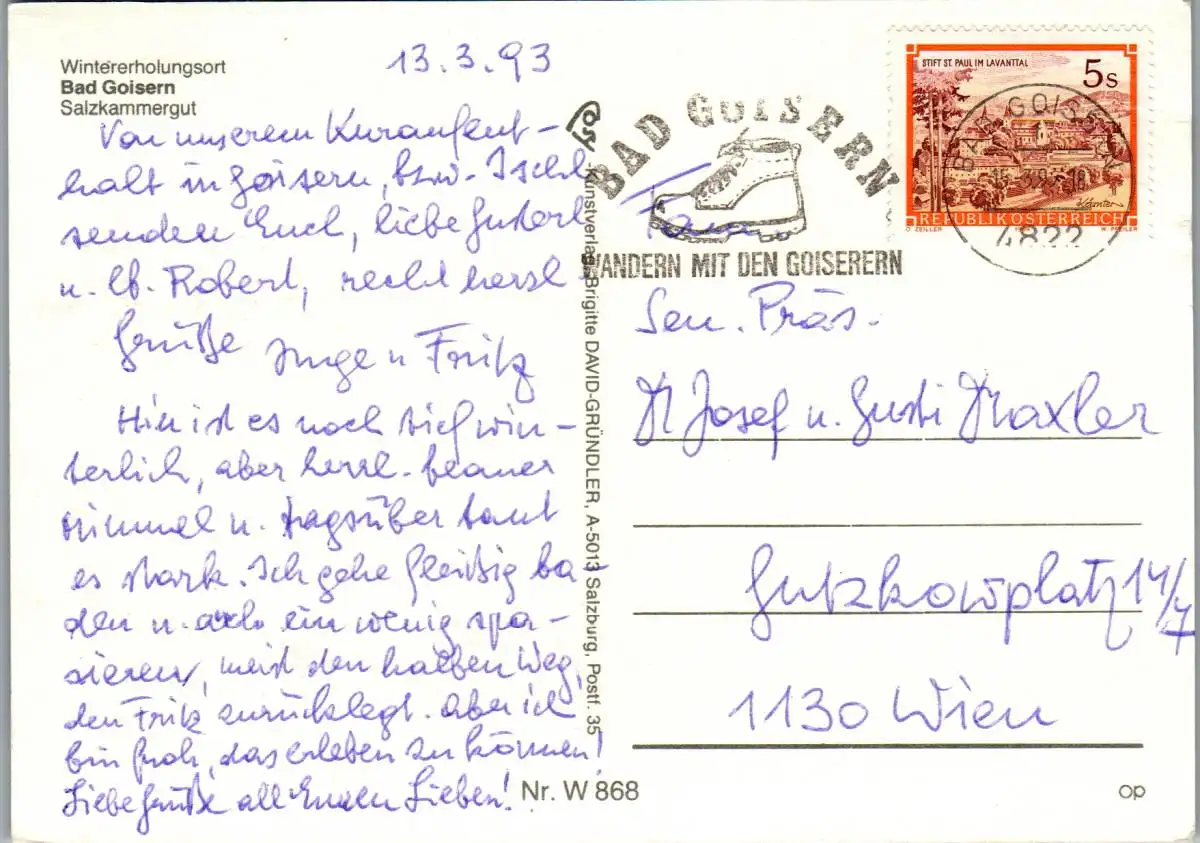 Wintererholungsort
Bad Goisern
Salzkammergut
13.3.93
Von unserem Kuraufent-
halt in Goisern, bzw. Ischl
senden Euch, liebe Gusterl
u. lb. Robert, recht herzl
Grüße Inge u Fritz
Hier ist es noch tief win-
terlich, aber herrl. blauer
Himmel u. tagsüber taut
es stark. Ich gehe fleißig ba-
den u. auch ein wenig spa-
zieren, meist den halben Weg,
den Fritz zurücklegt. Aber ich
bin froh, das erleben zu können!
Liebe Grüße all Euren Lieben!
Kunstverlag Brigitte DAVID-GRÜNDLER, A-5013 Salzburg, Postf. 35
Nr. W 868
Post
BAD GOISERN
WANDERN MIT DEN GOISERERN
STIFT ST. PAUL IM LAVANTTAL
5s
REPUBLIK ÖSTERREICH
O. ZEILLER
W. PFEILER
BAD GOISERN
4822
Fam
Sen. Präs.
Dr Josef u. Gusti Draxler
Gutzkowplatz 14/7
1130 Wien
op